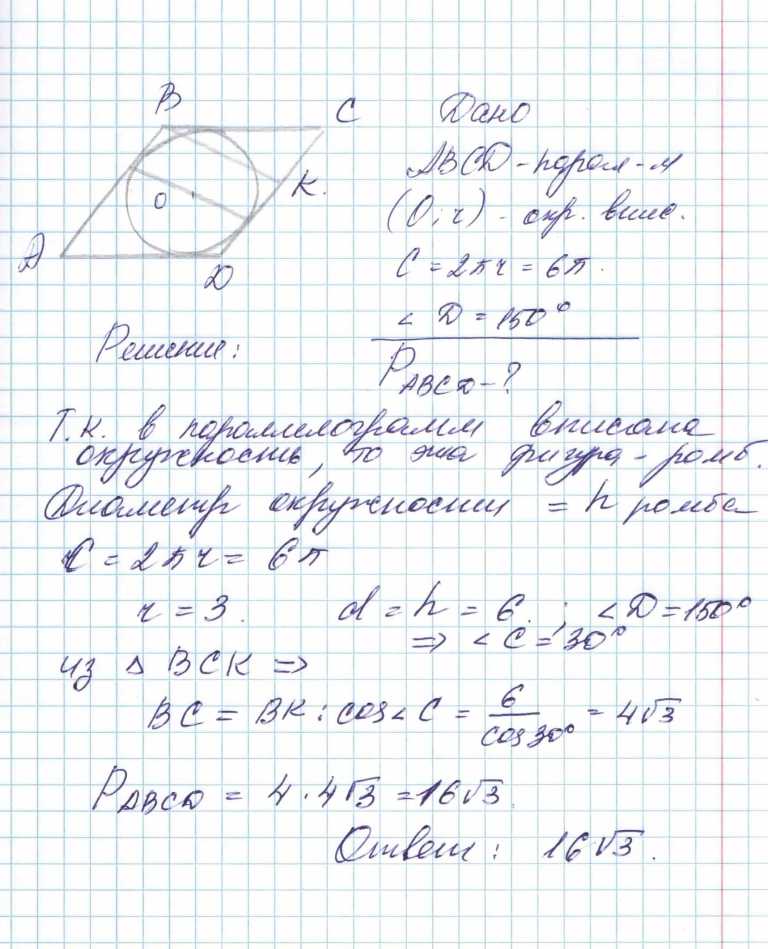 B
C
Дано
ABCD - парал-м
K.
O
(O; r) - окр. впис.
A
D
C = 2πr = 6π.
< D = 150°
Решение:
P ABCD - ?
Т.к. в параллелограмм вписана
окружность, то эта фигура - ромб.
Диаметр окружности = h ромба
C = 2πr = 6π
r = 3. d = h = 6. ; < D = 150°
=> < C = 30°
из Δ BCK =>
BC = BK : cos < C = 6/cos 30° = 4√3
P ABCD = 4 · 4√3 = 16√3.
Ответ: 16√3.